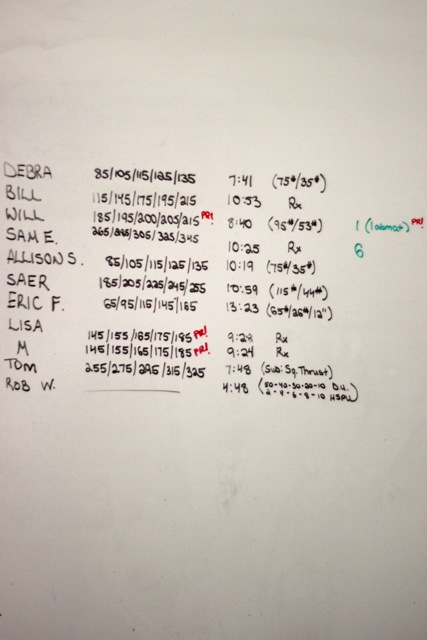 DEBRA 85/105/115/125/135 7:41 (75#/35#)
BILL 115/145/175/195/215 10:53 Rx
WILL 185/195/200/205/215 PR! 8:40 (95#/53#) 1 (1 abmat) PR!
SAM E. 265/285/305/325/345 10:25 Rx 6
ALLISON S. 85/105/115/125/135 10:19 (75#/35#)
SAER 185/205/225/245/255 10:59 (115#/44#)
ERIC F. 65/95/115/145/165 13:23 (65#/26#/12")
LISA 145/155/165/175/185 PR! 9:24 Rx
M 145/155/165/175/185 PR! 9:24 Rx
TOM 255/275/295/315/325 7:48 (Sub: Sq. Thrust)
ROB W. 4:48 (50-40-30-20-10 D.U.
2-4-6-8-10 HSPU)